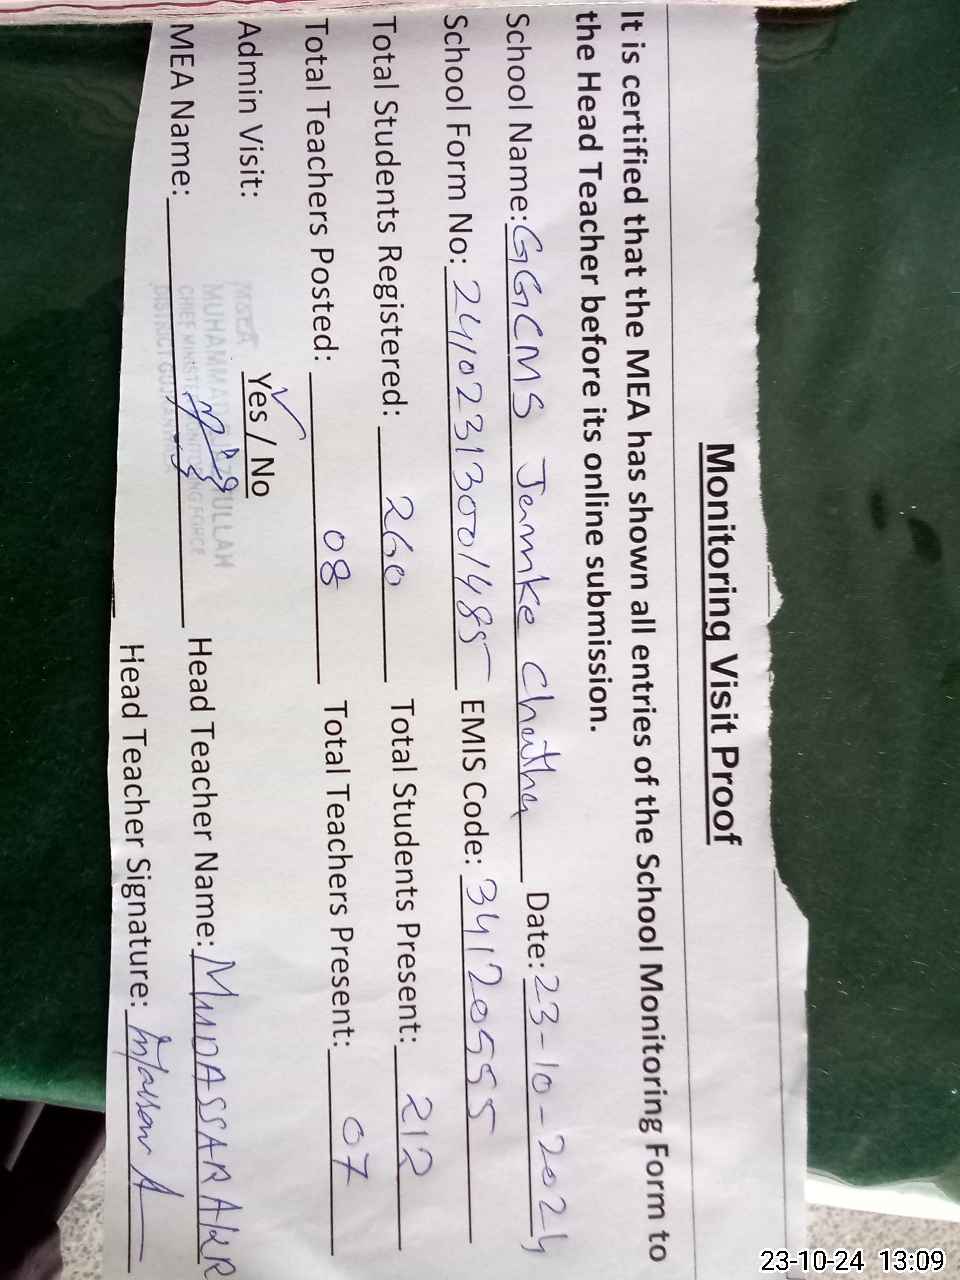 Monitoring Visit Proof
It is certified that the MEA has shown all entries of the School Monitoring Form to
the Head Teacher before its online submission.
School Name: GGCMS Jamke Chattha Date: 23-10-2024
School Form No: 24102313001485 EMIS Code: 34120555
Total Students Registered: 260 Total Students Present: 212
Total Teachers Posted: 08 Total Teachers Present: 07
Admin Visit: Yes / No
MEA Name: Head Teacher Name: MUDASSAR
MUHAMMAD
CHIEF MINISTER MONITORING FORCE
Head Teacher Signature:
23-10-24 13:09